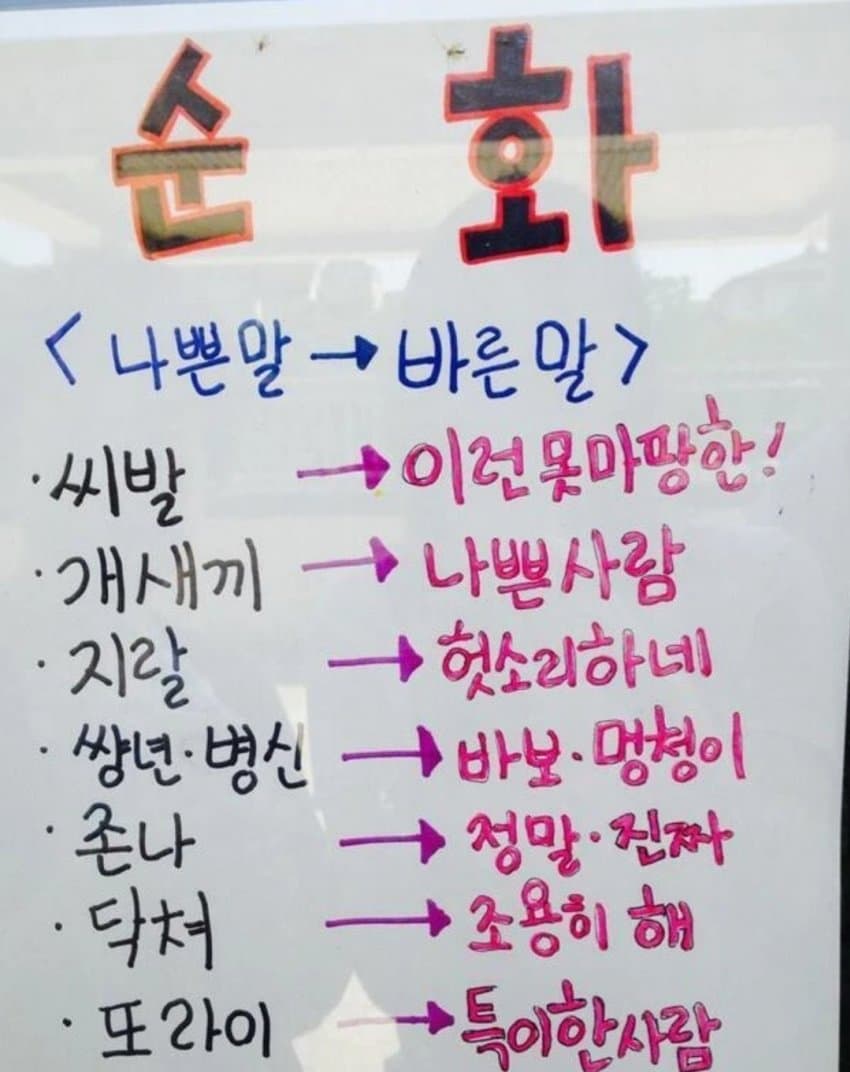 순 화
<나쁜말→바른말>
·씨발 → 이런못마땅한!
·개새끼 → 나쁜사람
·지랄 → 헛소리하네
·쌍년·병신 → 바보·멍청이
·존나 → 정말·진짜
·닥쳐 → 조용히 해
·또라이 → 특이한사람